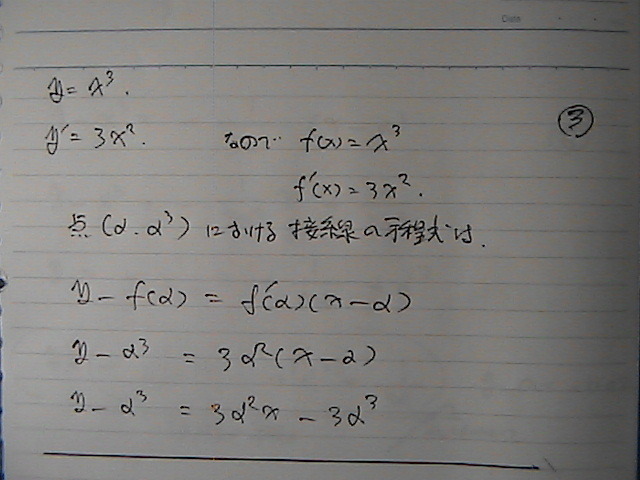 Date
y = x³.
③
y' = 3x². なので f(x) = x³
f'(x) = 3x².
点(α, α³)における接線の方程式は,
y - f(α) = f'(α)(x - α)
y - α³ = 3α²(x - α)
y - α³ = 3α²x - 3α³